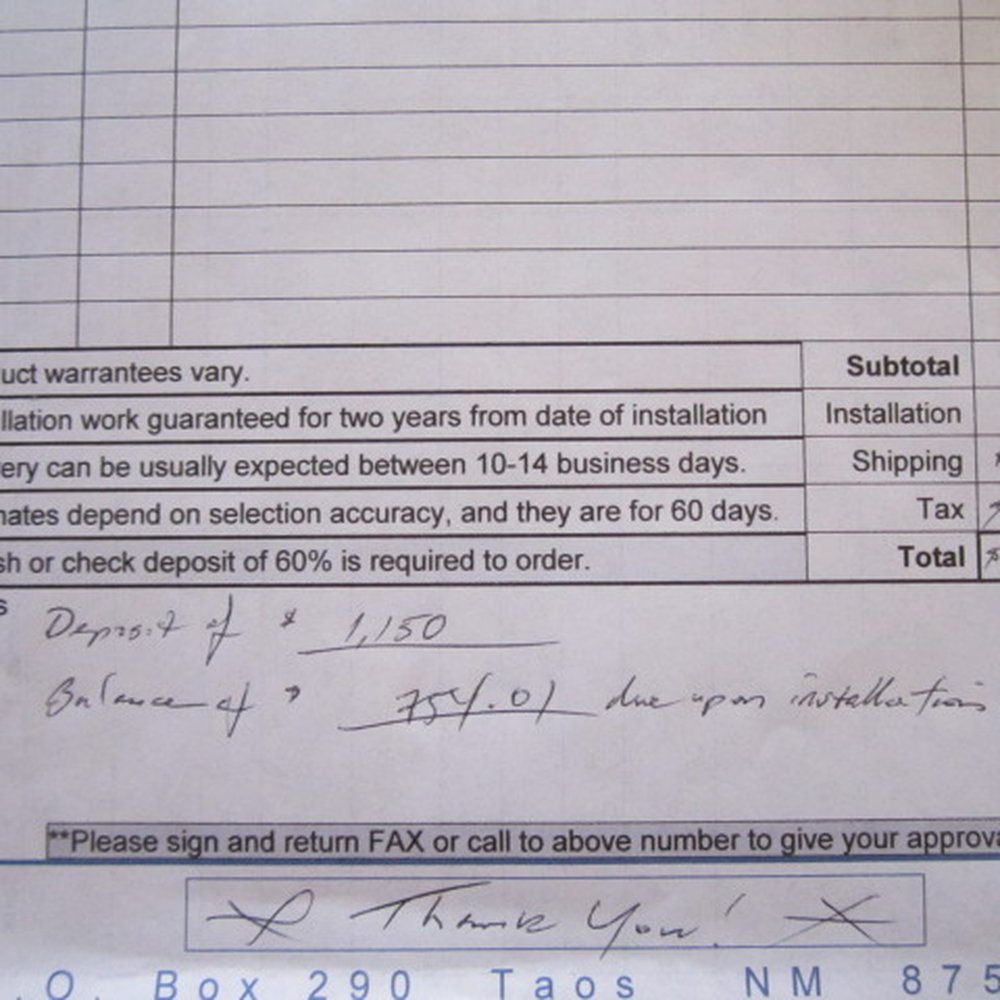 uct warrantees vary. Subtotal
llation work guaranteed for two years from date of installation Installation
ery can be usually expected between 10-14 business days. Shipping
nates depend on selection accuracy, and they are for 60 days. Tax
sh or check deposit of 60% is required to order. Total
s
Deposit of $ 1,150
Balance of $ 754.01 due upon installation
**Please sign and return FAX or call to above number to give your approva
Thank You!
. O. Box 290 Taos NM 875